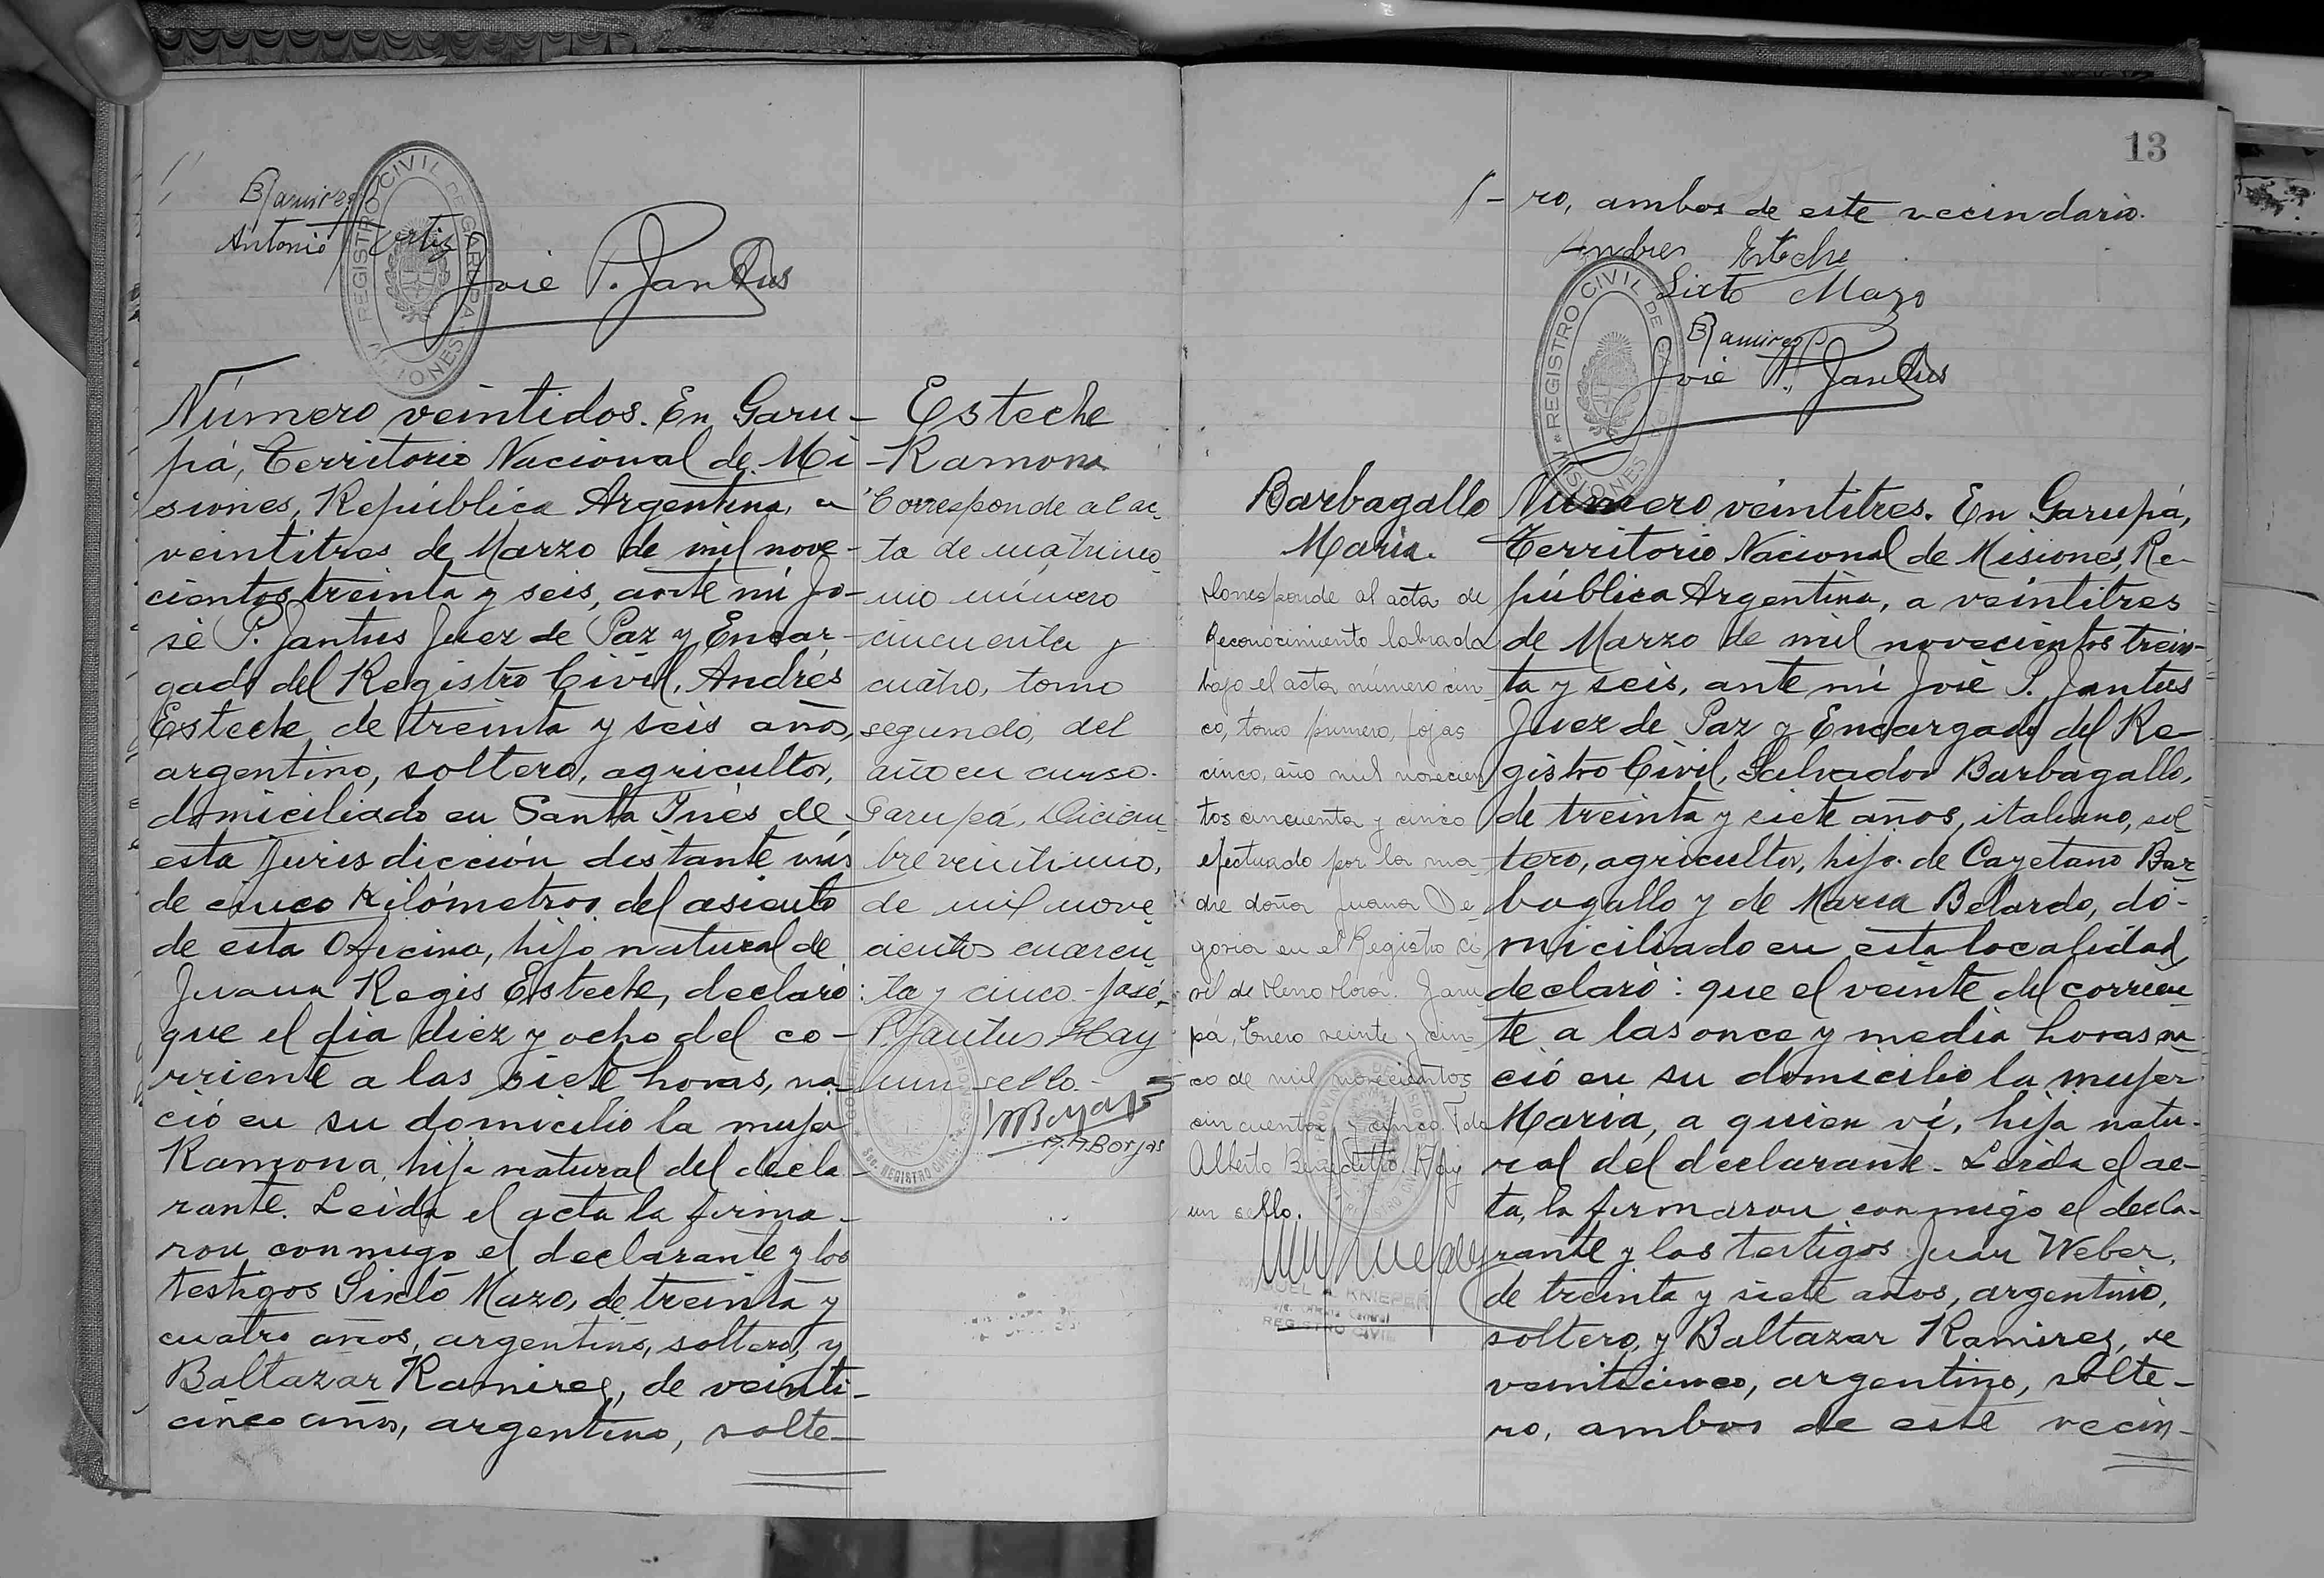 B Ramirez
Antonio Ortiz
José P. Jantus
REGISTRO CIVIL DE GARUPA
MISIONES
Número veintidos. En Garu-
pá, Territorio Nacional de Mi-
siones, República Argentina, a
veintitres de Marzo de mil nove-
cientos treinta y seis, ante mí Jo-
sé P. Jantus Juez de Paz y Encar-
gado del Registro Civil, Andrés
Esteche de treinta y seis años,
argentino, soltero, agricultor,
domiciliado en Santa Inés de
esta Jurisdicción distante más
de cinco Kilómetros del asiento
de esta Oficina, hijo natural de
Juana Regis Esteche, declaró:
que el dia diez y ocho del co-
rriente a las siete horas, na-
ció en su domicilio la mujer
Ramona, hija natural del decla-
rante. Leida el acta la firma-
ron conmigo el declarante y los
testigos Sixto Mazo, de treinta y
cuatro años, argentino, soltero, y
Baltazar Ramirez, de veinti-
cinco años, argentino, solte-
Esteche
Ramona
Corresponde al ac-
ta de matrimo-
nio número
cincuenta y
cuatro, tomo
segundo, del
año en curso.
Garupá, Diciem-
bre veintiuno,
de mil nove-
cientos cuaren-
ta y cinco. - José
P. Jantus Hay
un sello.-
Borjas
REGISTRO CIVIL
13
ro, ambos de este vecindario.
Andres Esteche
Sixto Mazo
B Ramirez
José P. Jantus
REGISTRO CIVIL DE
MISIONES
Barbagallo
María.
Corresponde al acta de
Reconocimiento labrada
bajo el acta número cin-
co, tomo primero, fojas
cinco, año mil novecien-
tos cincuenta y cinco
efectuado por la ma-
dre doña Juana De-
goria en el Registro Ci-
vil de Cerro Corá. Garu-
pá, Enero veinte y cin-
co de mil novecientos
cincuenta y cinco. Fdo
Alberto Hay
un sello.
MIGUEL A. KNIEPER
REGISTRO CIVIL
Número veintitres. En Garupá,
Territorio Nacional de Misiones, Re-
pública Argentina, a veintitres
de Marzo de mil novecientos trein-
ta y seis, ante mí José P. Jantus
Juez de Paz y Encargado del Re-
gistro Civil, Salvador Barbagallo,
de treinta y siete años, italiano, sol
tero, agricultor, hijo de Cayetano Bar-
bagallo y de Maria Belardo, do-
miciliado en esta localidad,
declaró: que el veinte del corrien-
te a las once y media horas na-
ció en su domicilio la mujer
María, a quien ví, hija natu-
ral del declarante. Leida el ac-
ta, la firmaron conmigo el decla-
rante y los testigos Juan Weber,
de treinta y siete años, argentino,
soltero, y Baltazar Ramirez, de
veinticinco, argentino, solte-
ro, ambos de este vecin-